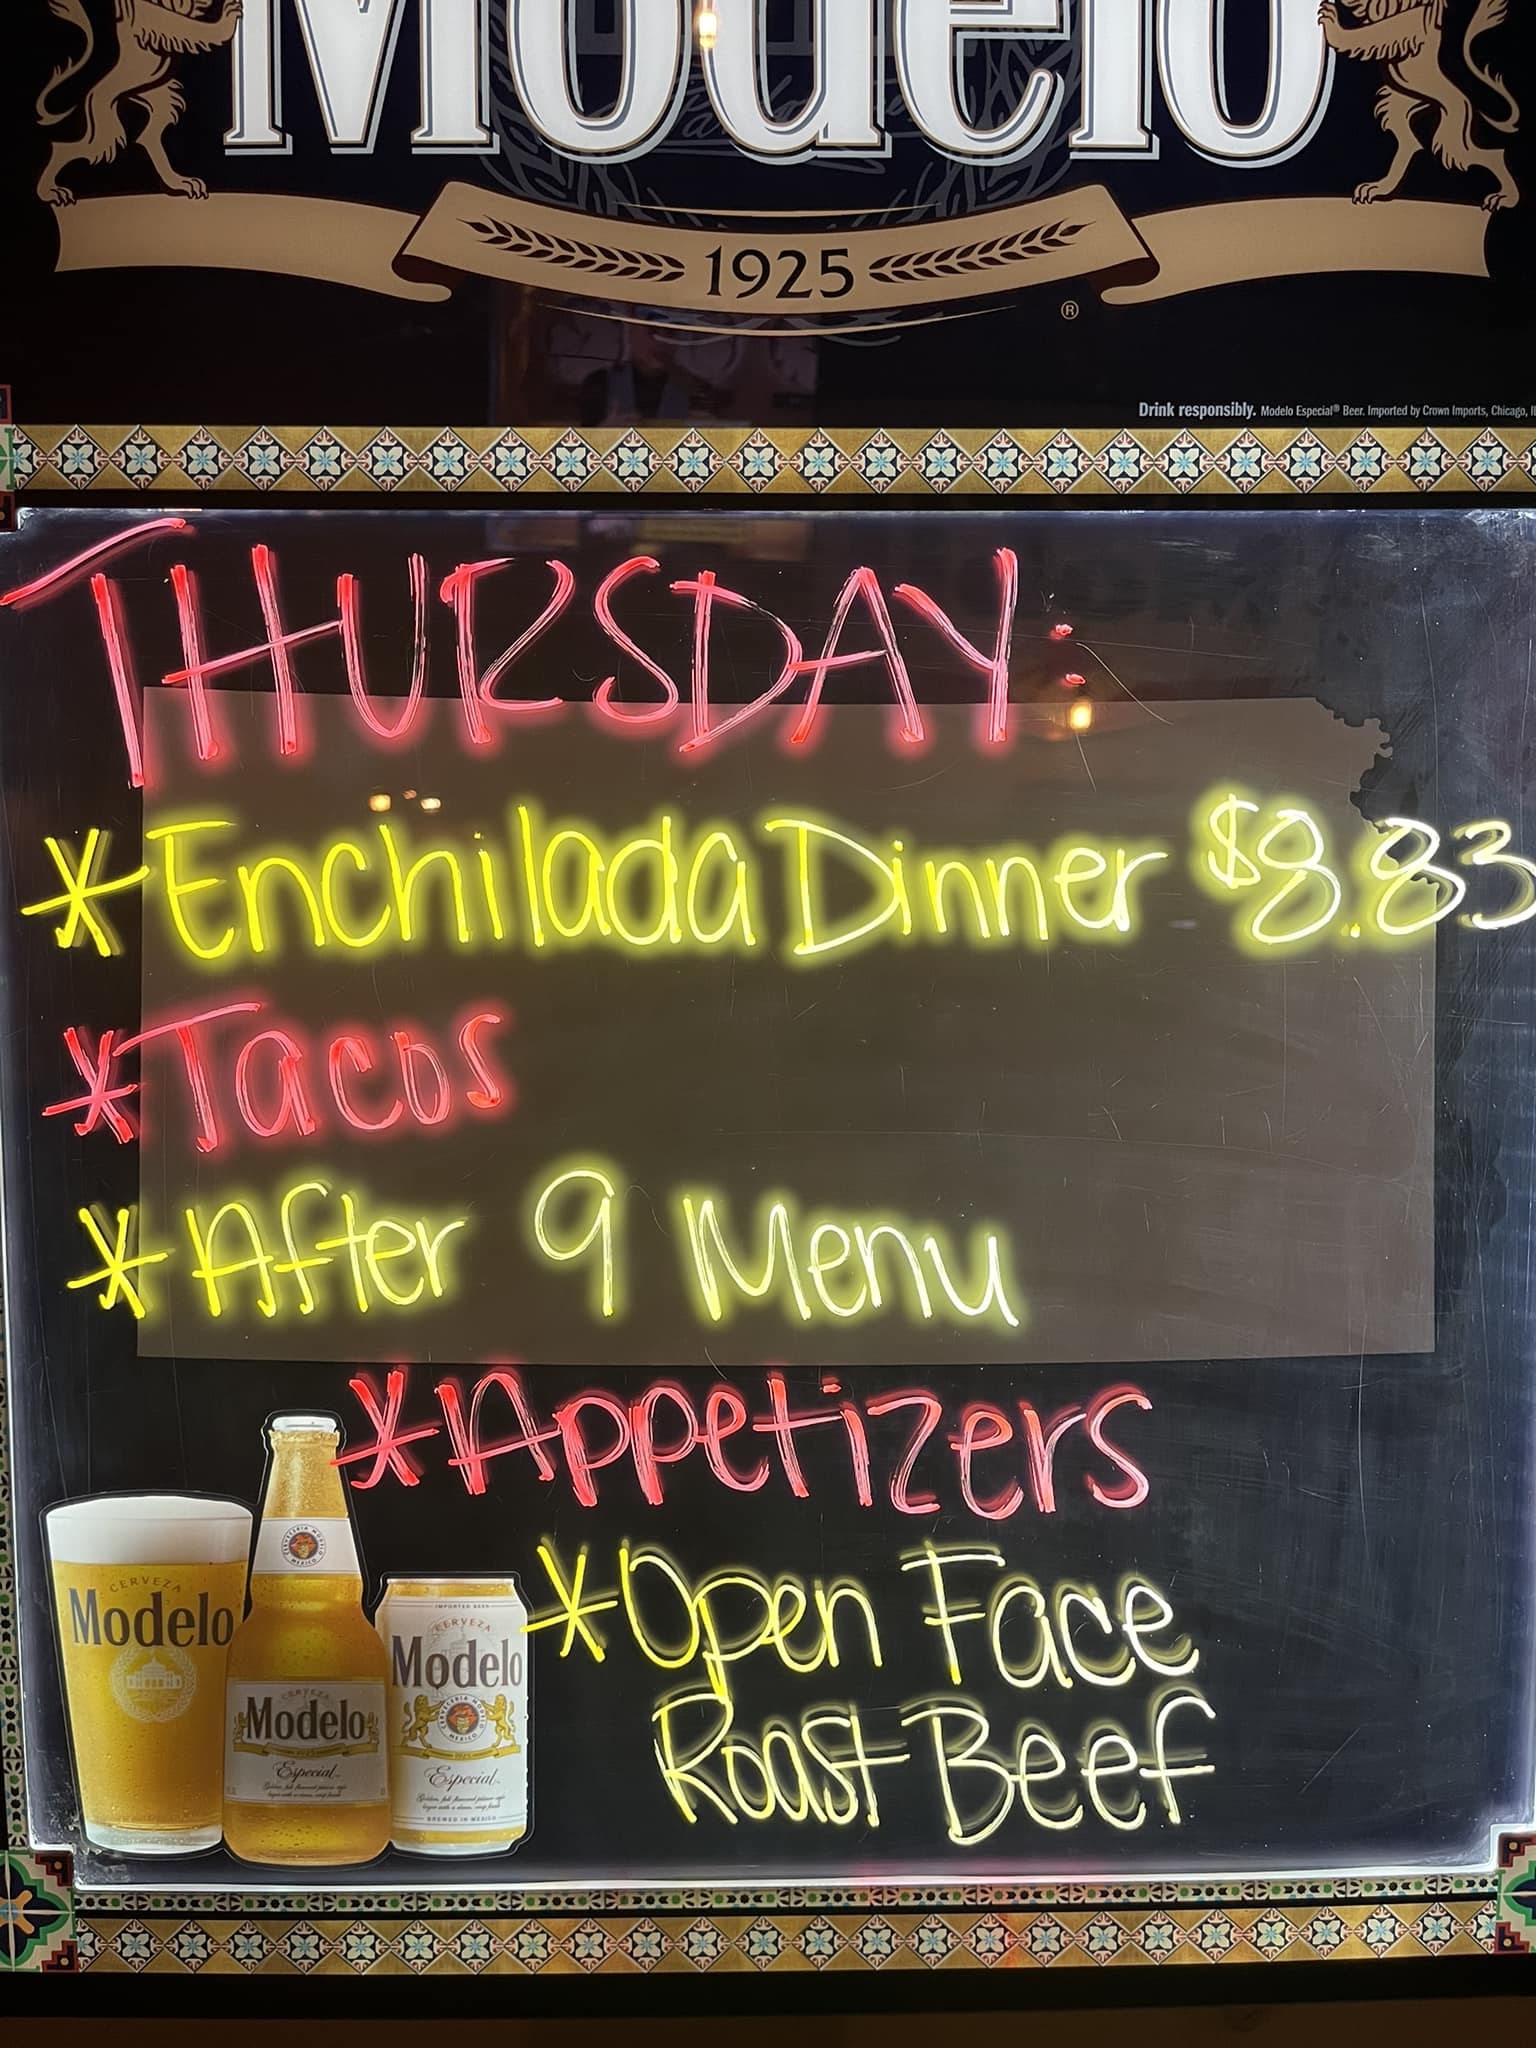 Modelo
1925
®
Drink responsibly. Modelo Especial® Beer. Imported by Crown Imports, Chicago,
THURSDAY:
*Enchilada Dinner $8.83
*Tacos
*After 9 Menu
*Appetizers
*Open Face
Roast Beef
CERVEZA
Modelo
CERVECERIA MODELO
MEXICO
CERVEZA
Modelo
1925
Especial
IMPORTED BEER
CERVEZA
Modelo
CERVECERIA MODELO
MEXICO
Especial
BREWED IN MEXICO